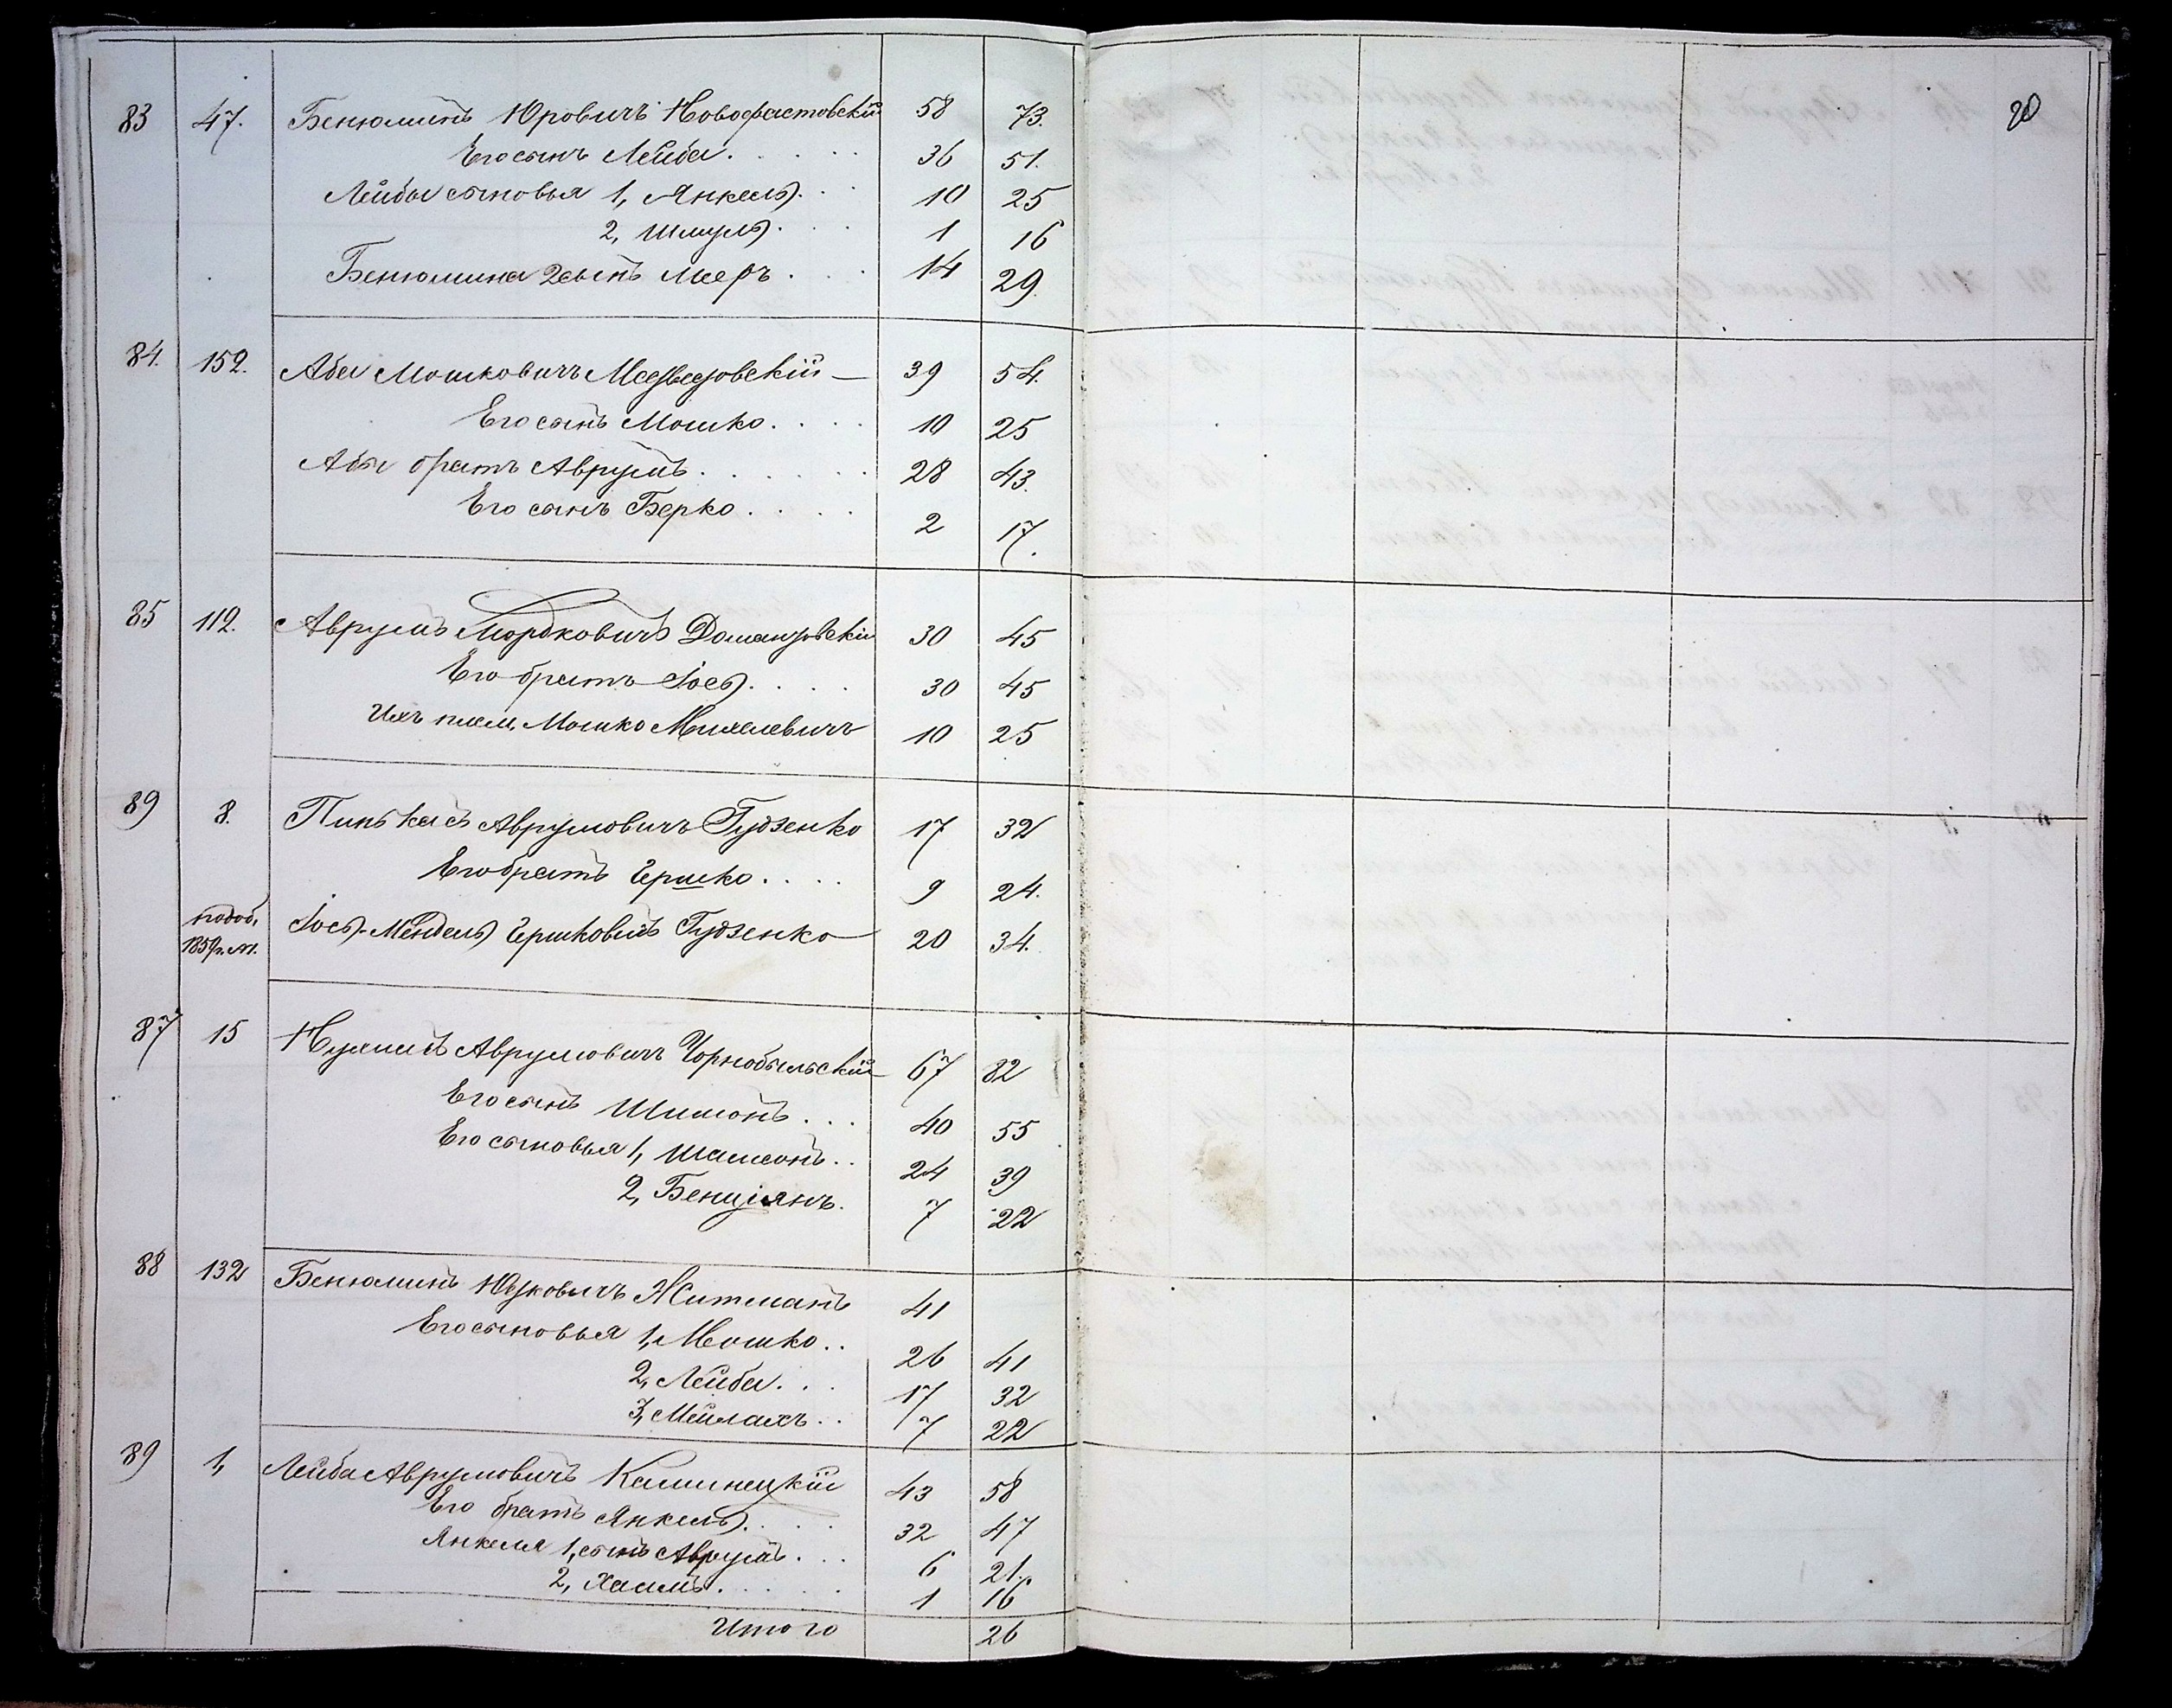 20
83 47. Бенюминъ Юровичъ Новофастовскій 58 73.
Его сынъ Лейба . . . . . 36 51.
Лейбы сыновья 1, Янкель . . . 10 25
2, Шмуль . . . 1 16
Бенюмина 2 сынъ Мееръ . . . 14 29.
84. 152. Аба Мошковичъ Медведовскій — 39 54.
Его сынъ Мошко . . . . 10 25
Абы братъ Аврумъ . . . . . . 28 43.
Его сынъ Берко . . . . 2 17.
85 112. Аврумъ Мордковичъ Доманзовскій 30 45
Его братъ Іось . . . . 30 45
Ихъ плем. Мошко Михелевичъ 10 25
89 8. Пинькасъ Аврумовичъ Гудзенко 17 32
Его братъ Гершко . . . . 9 24.
подоб. 1859 г. Іось-Мендель Гершковичъ Гудзенко 20 34.
87 15 Нухимъ Аврумовичъ Чорнобыльскій 67 82
Его сынъ Шимонъ . . . 40 55
Его сыновья 1, Шамсонъ . . 24 39
2, Бенціянъ . 7 22
88 132 Бенюминъ Юдковичъ Житманъ 41
Его сыновья 1, Мошко . . 26 41
2, Лейба . . . 17 32
3, Мейлахъ . . 7 22
89 1, Лейба Аврумовичъ Каминецкій 43 58
Его братъ Янкель . . . . 32 47
Янкеля 1, сынъ Аврумъ . . . 6 21.
2, Хаимъ . . . . . 1 16
Итого 26